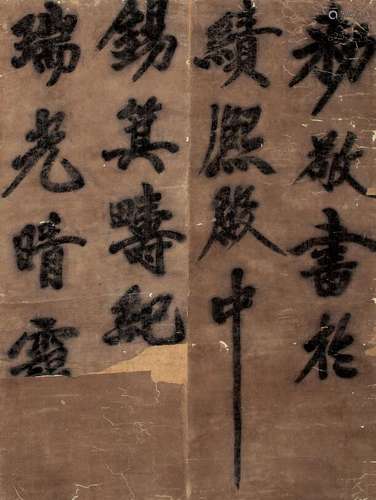 敬書於
緝熙殿中
錫箕疇紀
瑞光暗